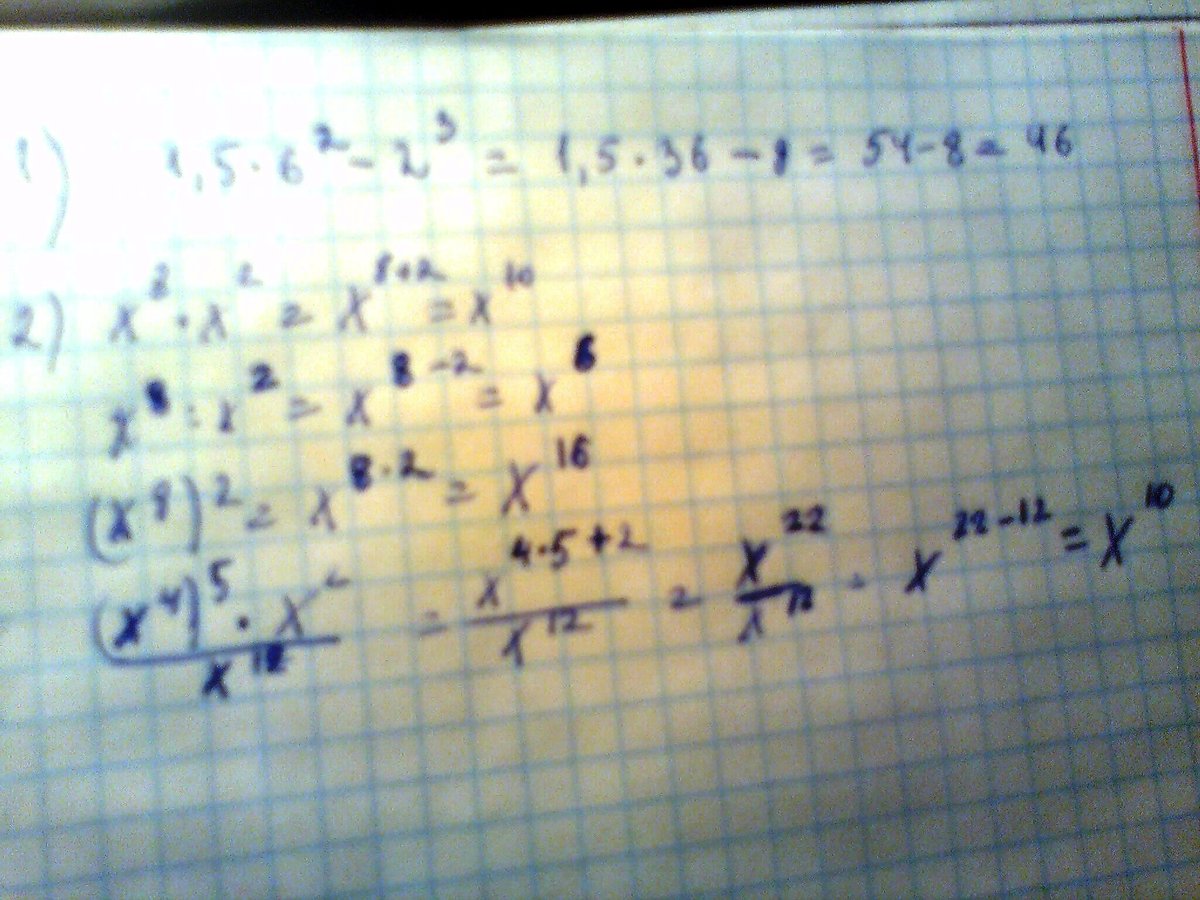 1) 1,5·6² - 2³ = 1,5·36 - 8 = 54 - 8 = 46
2) x⁸·x² = x⁸⁺² = x¹⁰
x⁸ : x² = x⁸⁻² = x⁶
(x⁸)² = x⁸·² = x¹⁶
(x⁴)⁵·x² / x¹² = x⁴·⁵⁺² / x¹² = x²² / x¹² = x²²⁻¹² = x¹⁰